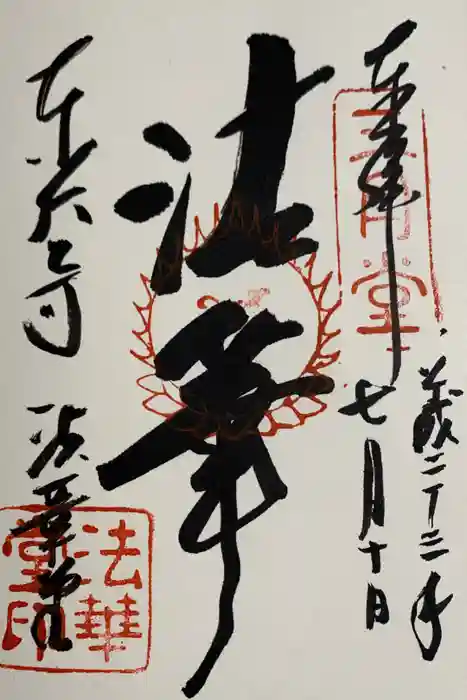 奉拝
平成二十三年
七月十日
三月堂
法華
東大寺 法華堂
法華
堂印